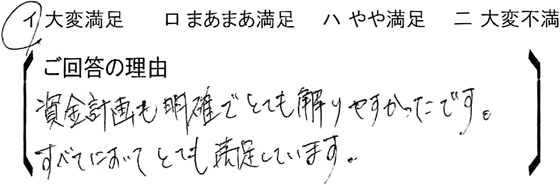 イ 大変満足 ロ まあまあ満足 ハ やや満足 ニ 大変不満
ご回答の理由
資金計画も明確でとても解りやすかったです。
すべてにおいてとても満足しています。